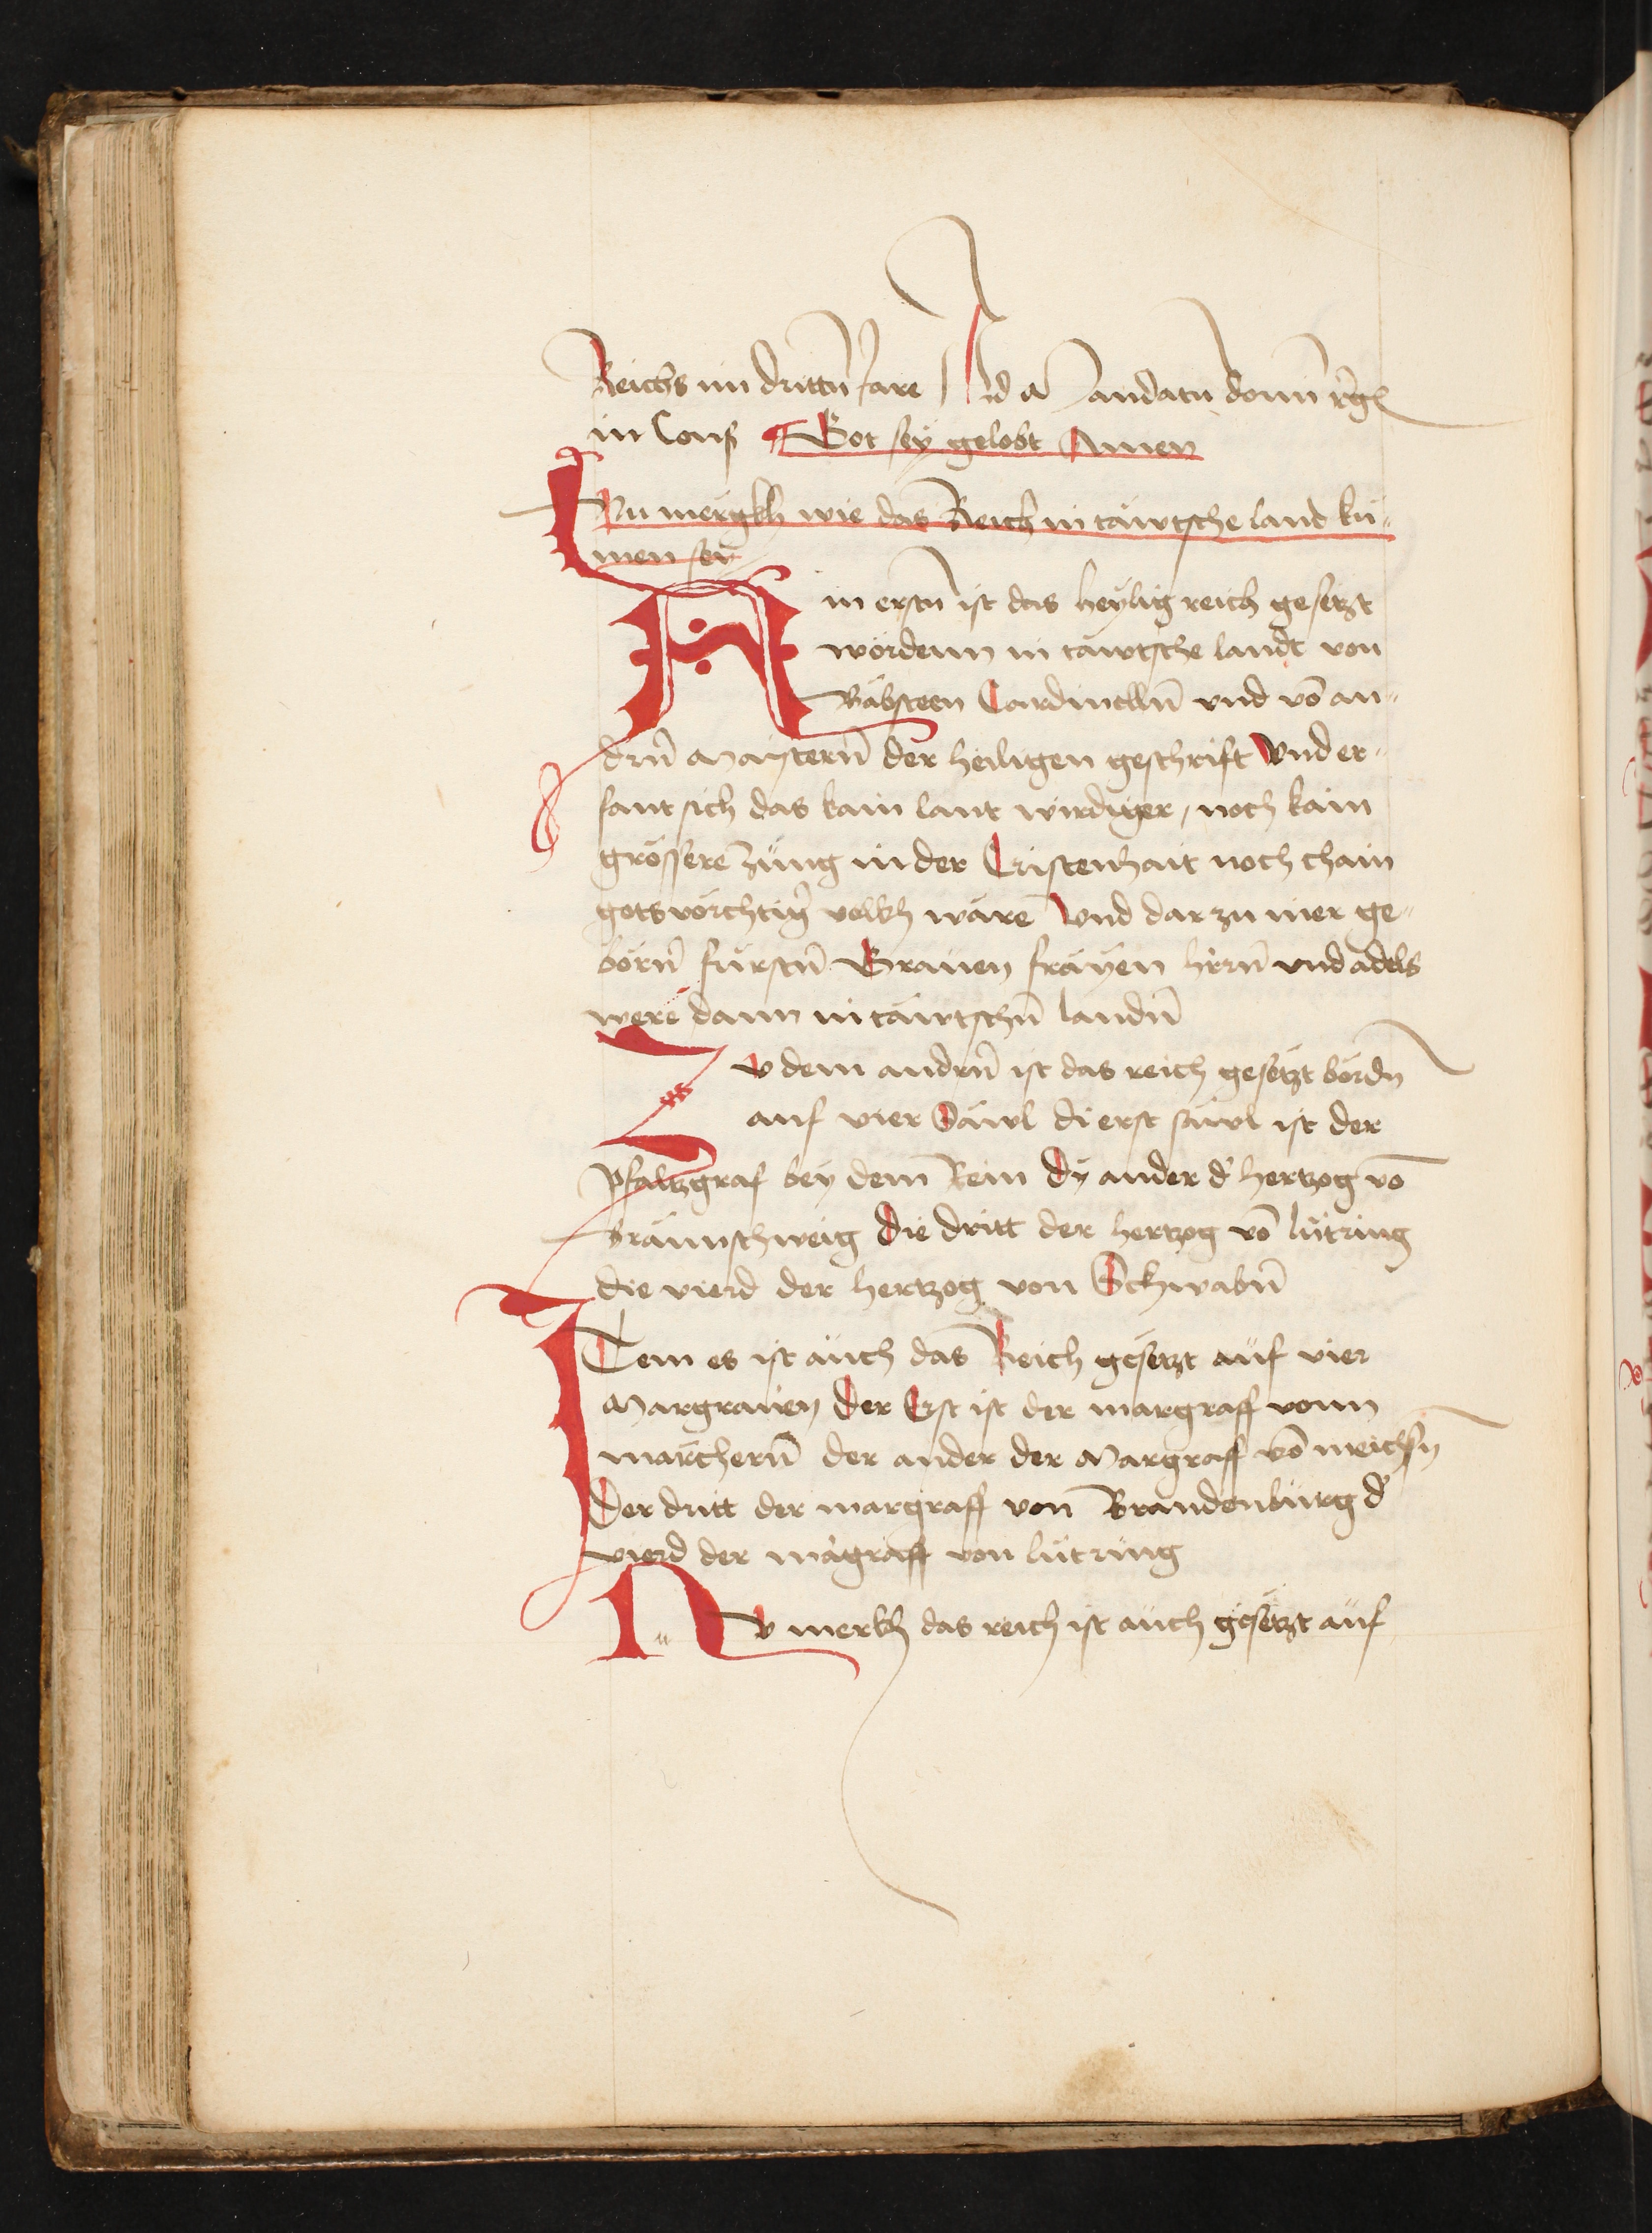 Reichs im drittn̄ Jare / Ad Mandatū domī r̄gꝭ
in Cons̄ Got sey gelobt Amen
Nu mergkh wie das Reich in täwtsche land kü-
men sey
Am erstn̄ ist das heylig reich gesetzt
wordenn in tawtsche landt von
Bäbsteen Cardinelln̄ vnd vō an-
drn̄ Maistern̄ der heiligen geschrift Vnd er-
fant sich das kain lant wirdiger / noch kain
grössere züng in der Cristenhait noch chain
gotsvörchtiḡ volkh wäre Vnd dar zu mer ge-
born̄ fürstn̄ Grauen fräyen hrrn̄ vnd adels
were dann in täwtschn̄ landn̄
Zv dem andrn̄ ist das reich gesetzt bordn̄
auf vier Säwl di erst säwl ist der
Pfaltzgraf bey dem Rein Dy ander d' hertzog vō
Braunschweig Die dritt der hertzog vō lütring
die vierd der hertzog von Schwabn̄
ITem es ist auch das Reich gesetzt auf vier
Margrauen Der Erst ist der margraff vonn
marchern̄ der ander der Margraff vō meichsn̄
Der dritt der margraff von Brandenburg d'
vierd der m'agraff von lütring
Nv merkh das reich ist auch gesetzt auf